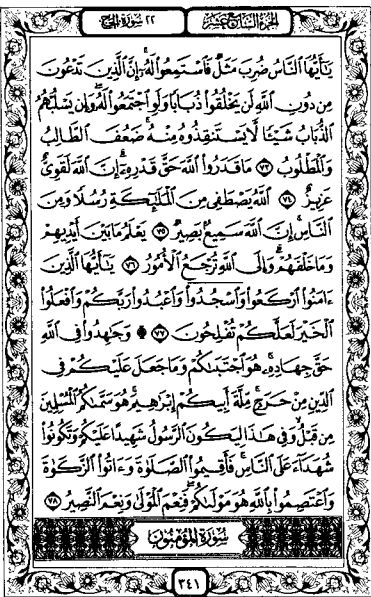 الجزء السابع عشر ٢٢ سورة الحج
يَـٰٓأَيُّهَا ٱلنَّاسُ ضُرِبَ مَثَلٌ فَٱسْتَمِعُوا۟ لَهُۥٓ ۚ إِنَّ ٱلَّذِينَ تَدْعُونَ
مِن دُونِ ٱللَّهِ لَن يَخْلُقُوا۟ ذُبَابًا وَلَوِ ٱجْتَمَعُوا۟ لَهُۥ ۖ وَإِن يَسْلُبْهُمُ
ٱلذُّبَابُ شَيْـًٔا لَّا يَسْتَنقِذُوهُ مِنْهُ ۚ ضَعُفَ ٱلطَّالِبُ
وَٱلْمَطْلُوبُ ٧٣ مَا قَدَرُوا۟ ٱللَّهَ حَقَّ قَدْرِهِۦٓ ۗ إِنَّ ٱللَّهَ لَقَوِىٌّ
عَزِيزٌ ٧٤ ٱللَّهُ يَصْطَفِى مِنَ ٱلْمَلَـٰٓئِكَةِ رُسُلًا وَمِنَ
ٱلنَّاسِ ۚ إِنَّ ٱللَّهَ سَمِيعٌۢ بَصِيرٌ ٧٥ يَعْلَمُ مَا بَيْنَ أَيْدِيهِمْ
وَمَا خَلْفَهُمْ ۗ وَإِلَى ٱللَّهِ تُرْجَعُ ٱلْأُمُورُ ٧٦ يَـٰٓأَيُّهَا ٱلَّذِينَ
ءَامَنُوا۟ ٱرْكَعُوا۟ وَٱسْجُدُوا۟ وَٱعْبُدُوا۟ رَبَّكُمْ وَٱفْعَلُوا۟
ٱلْخَيْرَ لَعَلَّكُمْ تُفْلِحُونَ ۩ ٧٧ وَجَـٰهِدُوا۟ فِى ٱللَّهِ
حَقَّ جِهَادِهِۦ ۚ هُوَ ٱجْتَبَىٰكُمْ وَمَا جَعَلَ عَلَيْكُمْ فِى
ٱلدِّينِ مِنْ حَرَجٍ ۚ مِّلَّةَ أَبِيكُمْ إِبْرَٰهِيمَ ۚ هُوَ سَمَّىٰكُمُ ٱلْمُسْلِمِينَ
مِن قَبْلُ وَفِى هَـٰذَا لِيَكُونَ ٱلرَّسُولُ شَهِيدًا عَلَيْكُمْ وَتَكُونُوا۟
شُهَدَآءَ عَلَى ٱلنَّاسِ ۚ فَأَقِيمُوا۟ ٱلصَّلَوٰةَ وَءَاتُوا۟ ٱلزَّكَوٰةَ
وَٱعْتَصِمُوا۟ بِٱللَّهِ هُوَ مَوْلَىٰكُمْ ۖ فَنِعْمَ ٱلْمَوْلَىٰ وَنِعْمَ ٱلنَّصِيرُ ٧٨
سُورَةُ المُؤْمِنُونَ
٣٤١